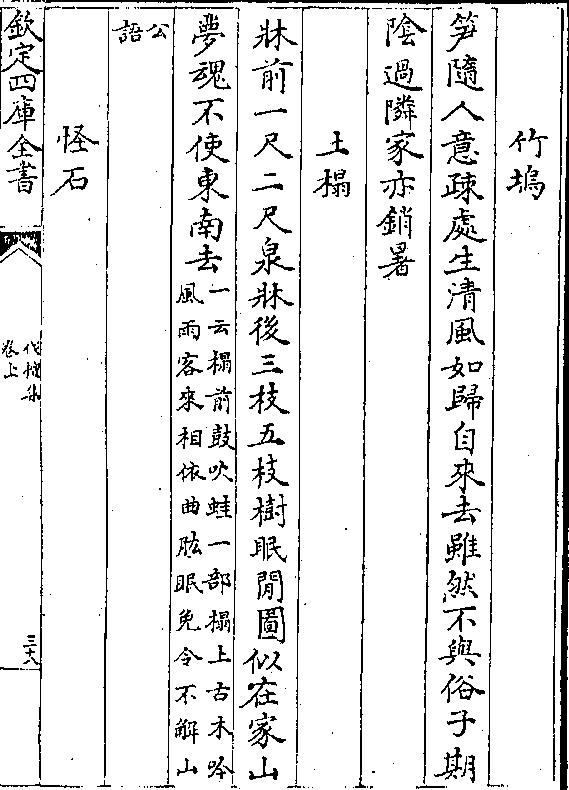 竹塢
笋隨人意疎處生清風如歸自來去雖然不與俗子期
陰過隣家亦銷暑
土榻
牀前一尺二尺泉牀後三枝五枝樹眠閒圖似在家山
夢魂不使東南去一云榻前鼓吹蛙一部榻上古木吟
風雨客來相依曲肱眠免令不解山
公
語
怪石
欽定四庫全書
卷上
三十八